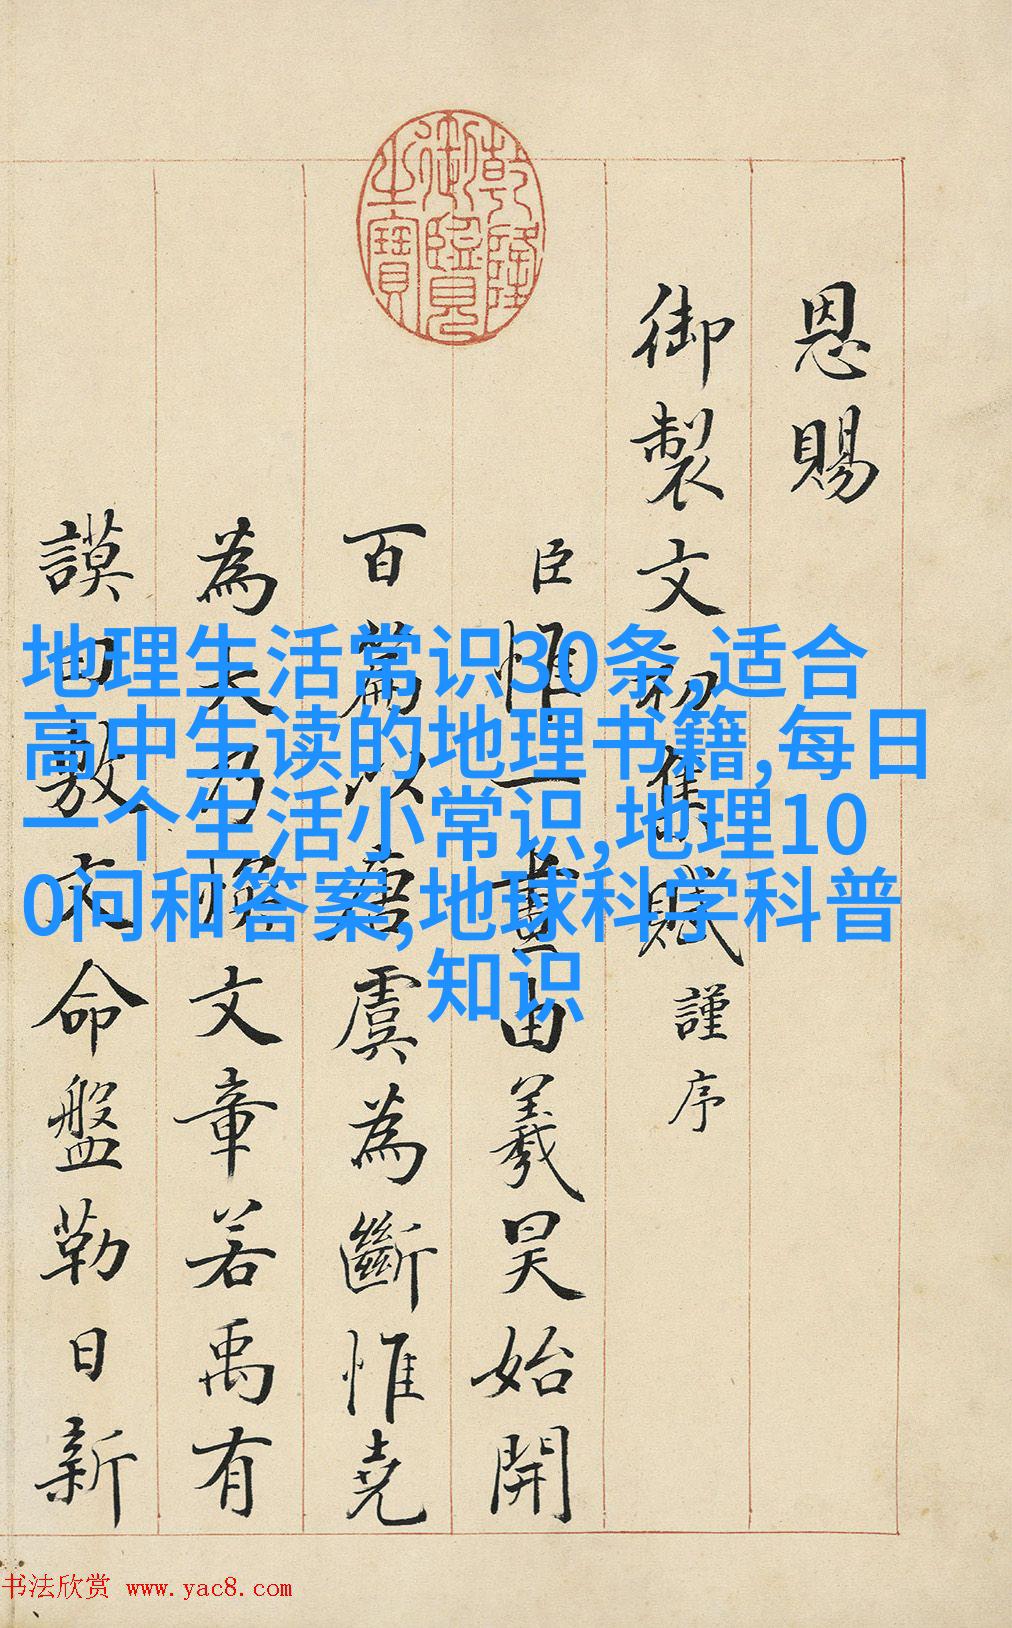 乾隆
御覽
之寶
恩賜
御製文初集賦謹序
臣惟一畫由羲昊始開
百篇以唐虞為斷惟堯
為大乃煥文章若禹有
謨敷文命盤勒日新
地理生活常识30条,适合
高中生读的地理书籍,每日
一个生活小常识,地理10
0问和答案,地球科学科普
知识
书法欣赏 www.yac8.com